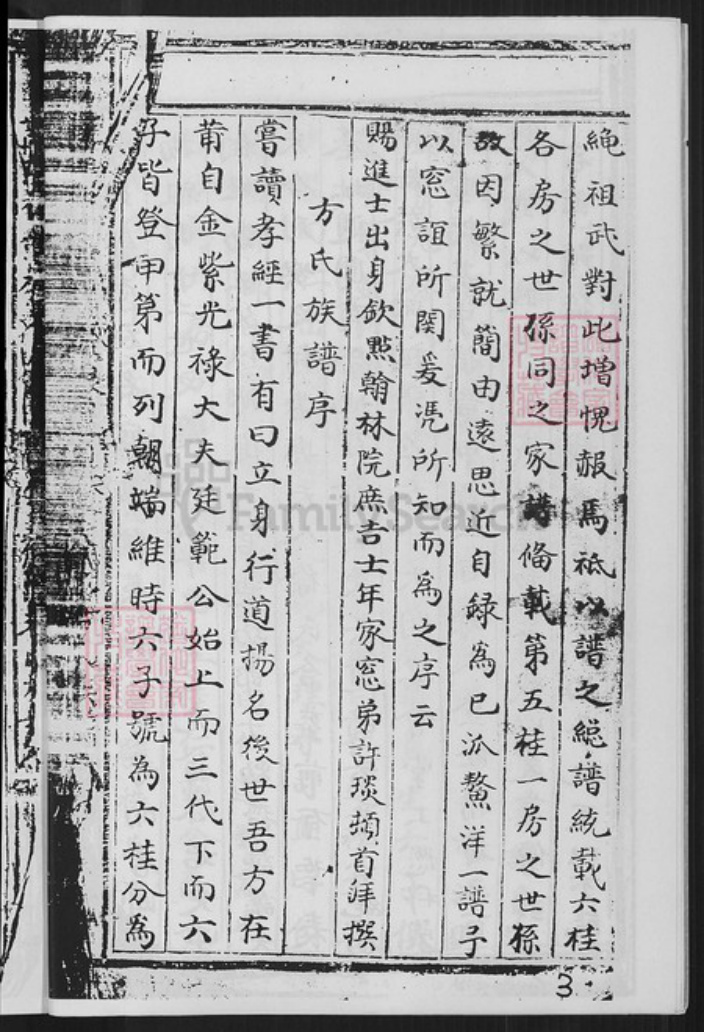 繩祖武對此增愧赧焉祗以譜之總譜統載六桂
各房之世孫同之家譜偹載第五桂一房之世孫
故因繁就簡由遠思近自録為己泒鰲洋一譜子
以窓誼所関爰凴所知而為之序云
賜進士出身欽㸃翰林院庶吉士年家窓弟許琰頓首拜撰
方氏族譜序
嘗讀孝經一書有曰立身行道揚名後世吾方在
莆自金紫光禄大夫廷範公始上而三代下而六
子皆登甲第而列朝端維時六子號為六桂分為
FamilySearch
3